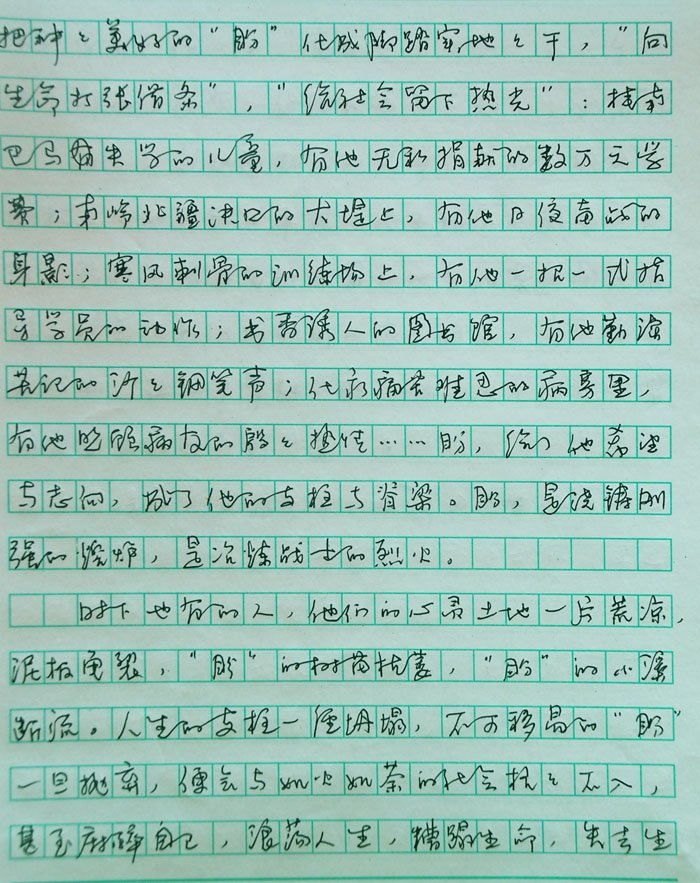 把种々美好的“盼”化成脚踏实地之干，“向
生命打张借条”，“给社会留下热光”：桂南
巴马辍失学的儿童，有他无私捐献的数万元学
费；南岭北疆决口的大堤上，有他日夜奋战的
身影；寒风刺骨的训练场上，有他一招一式指
导学员的动作；书香诱人的图书馆，有他勤读
苦记的沙々钢笔声；化疗痛苦难忍的病房里，
有他照顾病友的殷々热情……盼，给了他希望
与志向，成了他的支柱与脊梁。盼，是浇铸刚
强的熔炉，是冶炼战士的烈火。
时下也有的人，他们的心灵土地一片荒凉，
泥板龟裂，“盼”的树苗枯萎，“盼”的小溪
断流。人生的支柱一经坍塌，不可移易的“盼”
一旦抛弃，便会与如火如荼的社会格々不入，
甚至麻醉自己，浪荡人生，糟蹋生命，失去生